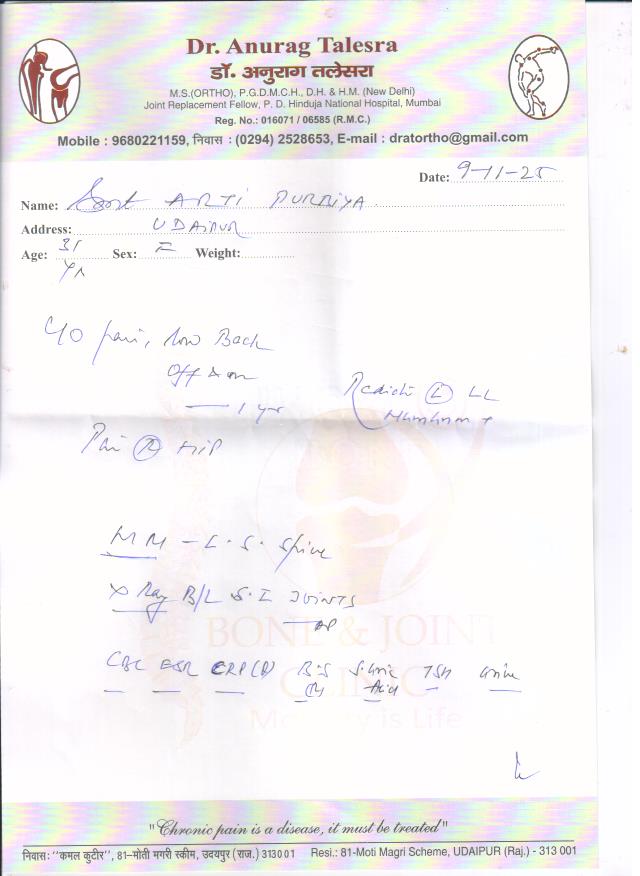 Dr. Anurag Talesra
डॉ. अनुराग तलेसरा
M.S.(ORTHO), P.G.D.M.C.H., D.H. & H.M. (New Delhi)
Joint Replacement Fellow, P. D. Hinduja National Hospital, Mumbai
Reg. No.: 016071 / 06585 (R.M.C.)
Mobile : 9680221159, निवास : (0294) 2528653, E-mail : dratortho@gmail.com
Date: 9-11-25
Name: Smt ARTI PURBIYA
Address: UDAIPUR
Age: 31 Yr Sex: F Weight:
C/O pain, low Back
Off & on
1 yr
Radiat (L) LL
Numbness +
Pain (R) HIP
MRI - L.S. Spine
X Ray B/L S.I JOINTS
AP
CBC ESR CRP(Q) B.S (R) S.Uric Acid TSH Urine
BONE & JOINT
CLINIC
is Life
"Chronic pain is a disease, it must be treated"
निवास: "कमल कुटीर", 81-मोती मगरी स्कीम, उदयपुर (राज.) 313001 Resi.: 81-Moti Magri Scheme, UDAIPUR (Raj.) - 313 001